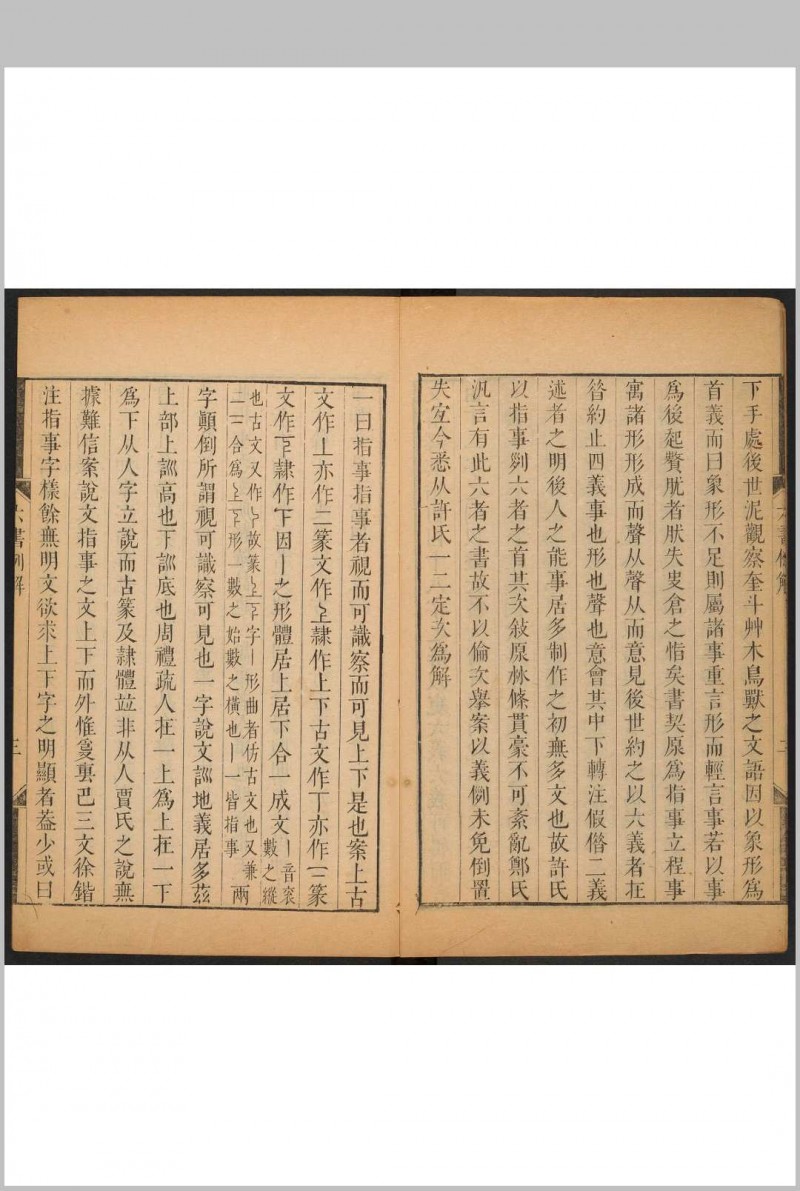 下手處後世泥觀察奎斗艸木鳥獸之文語因以象形爲
首義而曰象形不足則屬諸事重言形而輕言事若以事
爲後起贅肬者肰失叟倉之恉矣書契原爲指事立程事
寓諸形形成而聲从聲从而意見後世約之以六義者在
昝約止四義事也形也聲也意會其中下轉注假偺二義
述者之明後人之能事居多制作之初無多文也故許氏
以指事刿六者之首其次敍原林條貫豪不可紊亂鄭氏
汎言有此六者之書故不以倫次擧案以義例未免倒置
失宐今悉从許氏一二定次爲解
一曰指事指事者視而可識察而可見上下是也案上古
文作丄亦作二篆文作隷作上下古文作丅亦作二篆
文作隷作下因丨之形體居上居下合一成文丨音衮數之縱
也古文又作故篆字丨形曲者仿古文也又兼二二合爲形一數之始數之橫也丨一皆指事兩
字顚倒所謂視可識察可見也一字說文訓地義居多茲
上部上訓高也下訓底也周禮疏人在一上爲上在一下
爲下从人字立說而古篆及隷體竝非从人賈氏之說無
據難信案說文指事之文上下而外惟叟巴三文徐鍇
注指事字樣餘無明文欲求上下字之明顯者葢少或曰
六書例解
三
六書例解
二